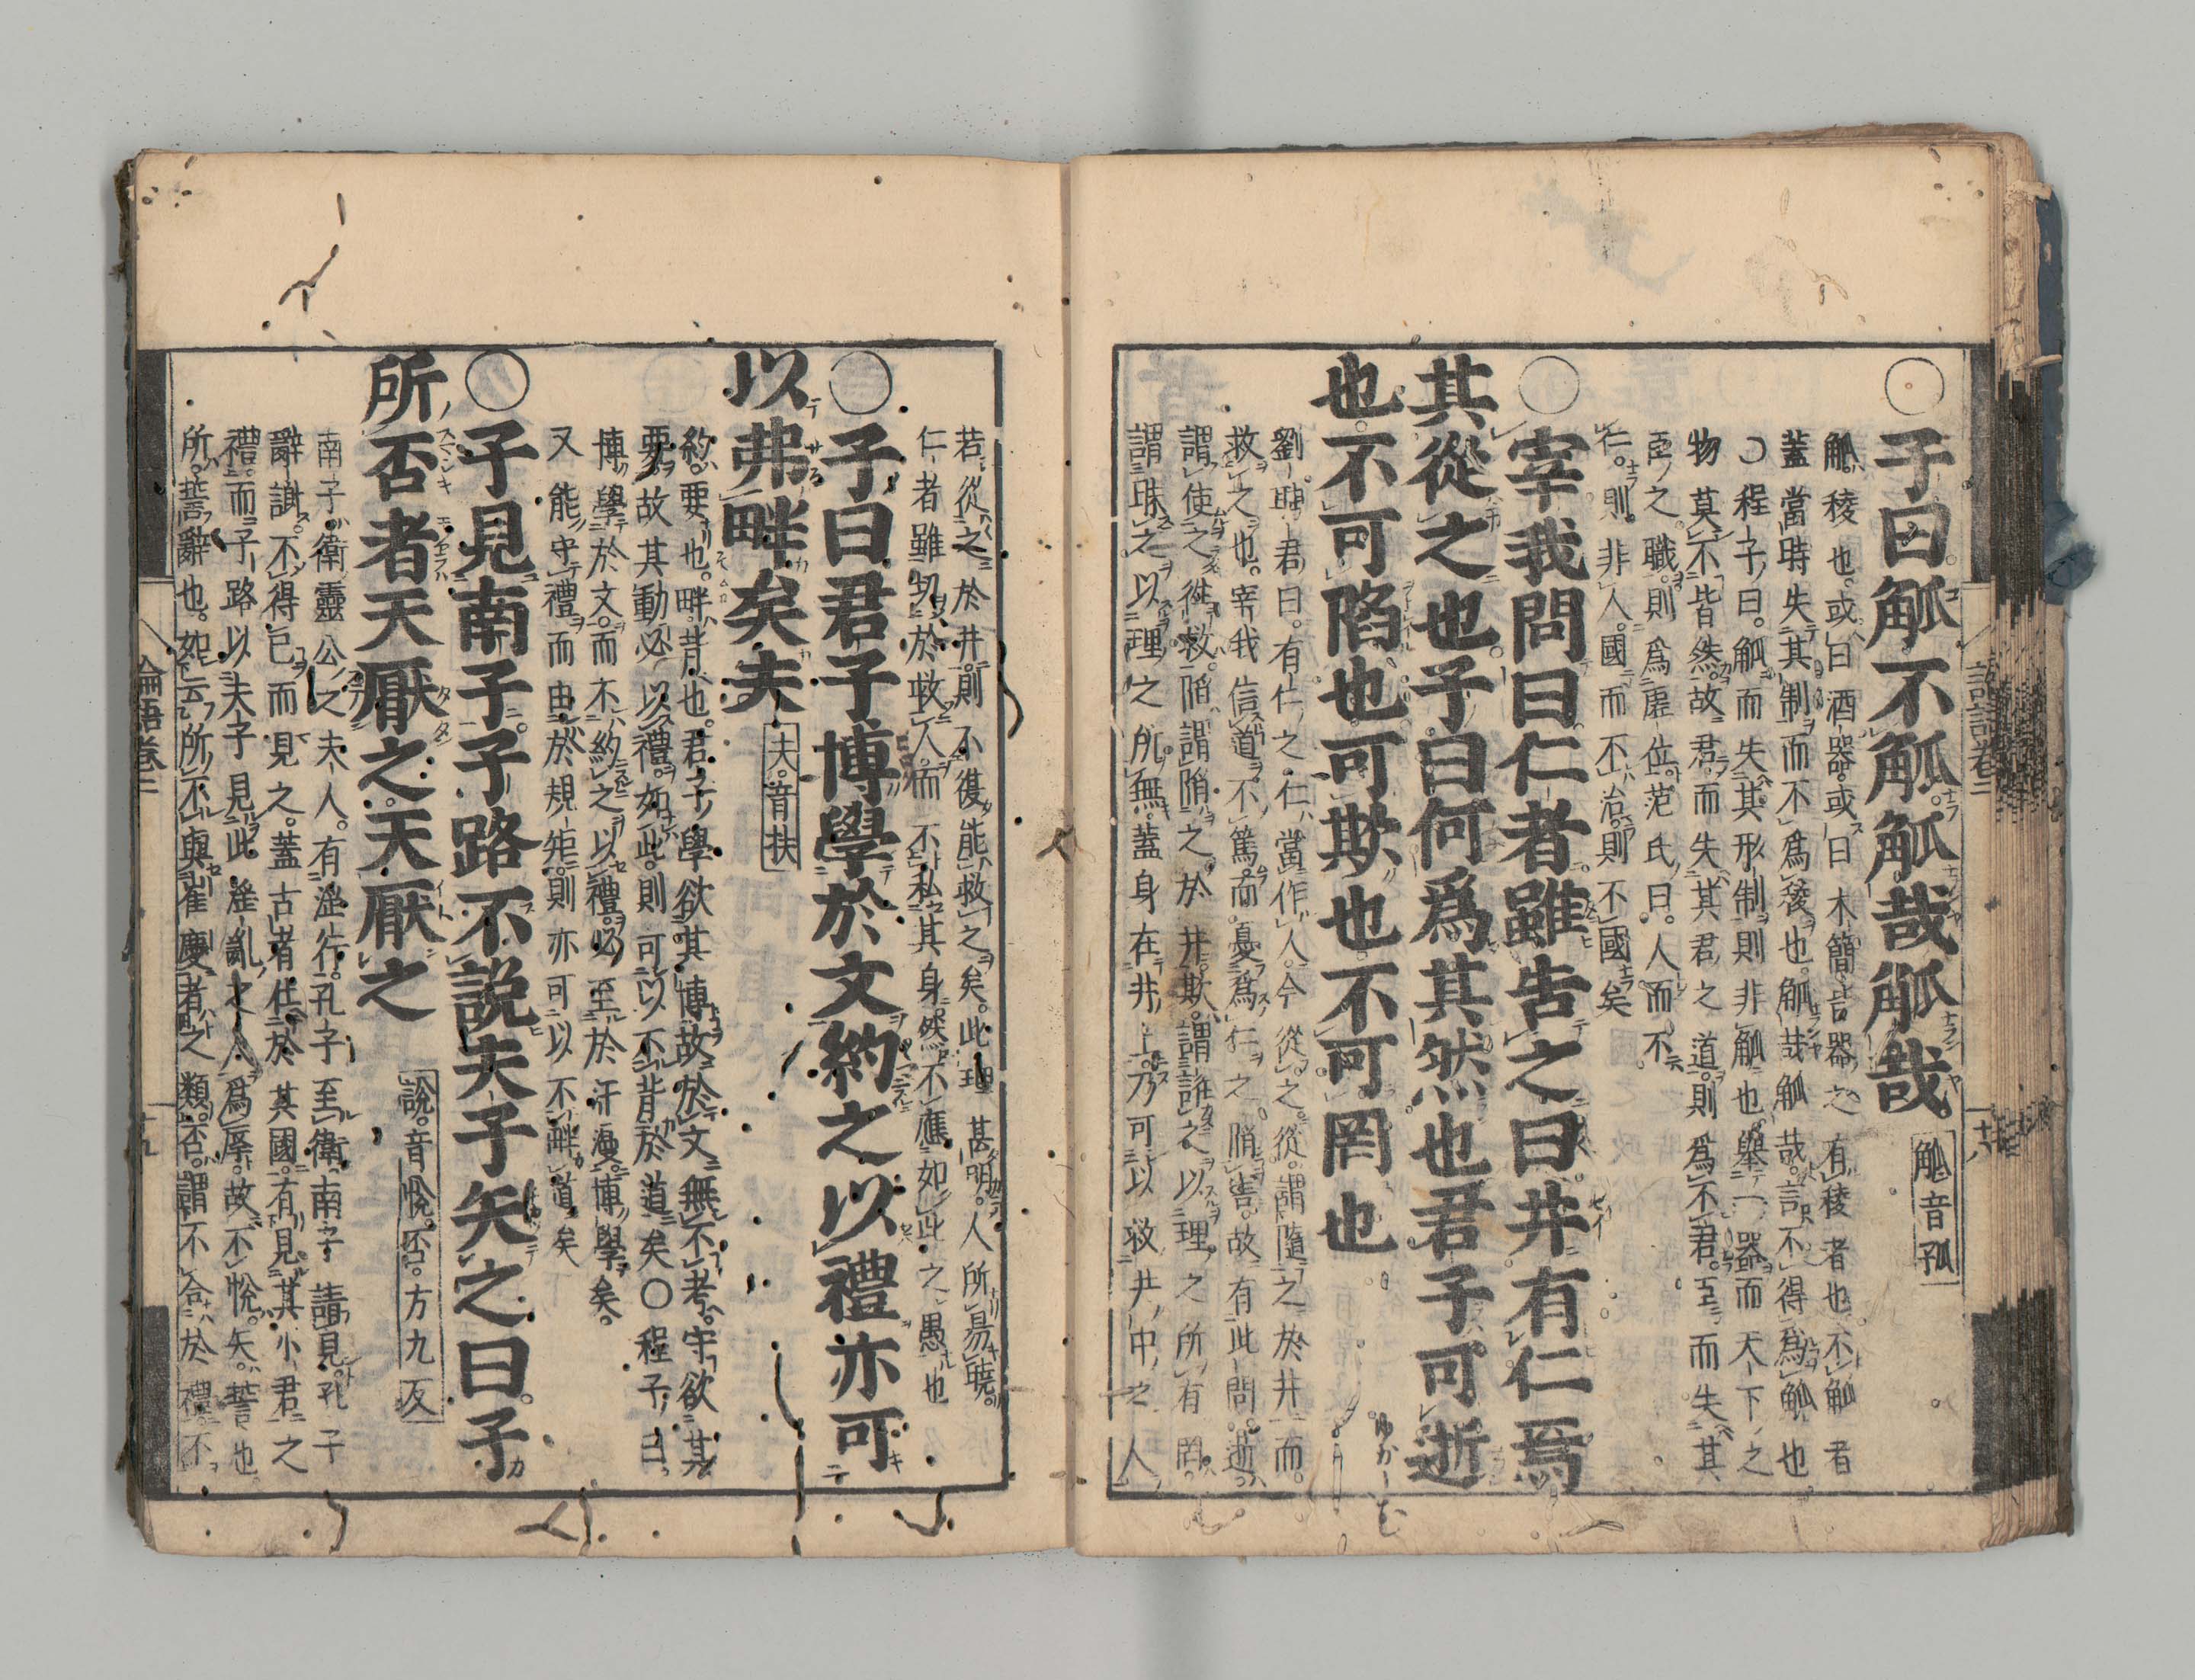 ○子曰觚不觚觚哉觚哉 觚音孤
觚稜也或曰酒器或曰木簡皆器之有稜者也不觚者
蓋當時失其制而不爲稜也觚哉觚哉言不得爲觚也
○程子曰觚而失其形制則非觚也舉一器而天下之
物莫不皆然故君而失其君之道則爲不君臣而失其
臣之職則爲虛位范氏曰人而不
仁則非人國而不治則不國矣
○宰我問曰仁者雖告之曰井有仁焉
其從之也子曰何爲其然也君子可逝
也不可陷也可欺也不可罔也
劉聘君曰有仁之仁當作人今從之從謂隨之於井而
救之也宰我信道不篤而憂爲仁之陷害故有此問逝
謂使之徃救陷謂陷之於井欺謂誑之以理之所有罔
謂昧之以理之所無蓋身在井上乃可以救井中之人
若從之於井則不復能救之矣此理甚明人所易曉
仁者雖切於救人而不私其身然不應如此之愚也
○子曰君子博學於文約之以禮亦可
以弗畔矣夫 夫音扶
約要也畔背也君子學欲其博故於文無不考守欲其
要故其動必以禮如此則可以不背於道矣○程子曰
博學於文而不約之以禮必至於汗漫博學矣
又能守禮而由於規矩則亦可以不畔道矣
○子見南子子路不説夫子矢之曰子
所否者天厭之天厭之 說音悅否方九反
南子衛靈公之夫人有淫行孔子至衛南子請見孔子
辭謝不得已而見之蓋古者仕於其國有見其小君之
禮而子路以夫子見此淫亂之人爲辱故不悅矢誓也
所誓辭也如云所不與崔慶者之類否謂不合於禮不
論語卷三
十九